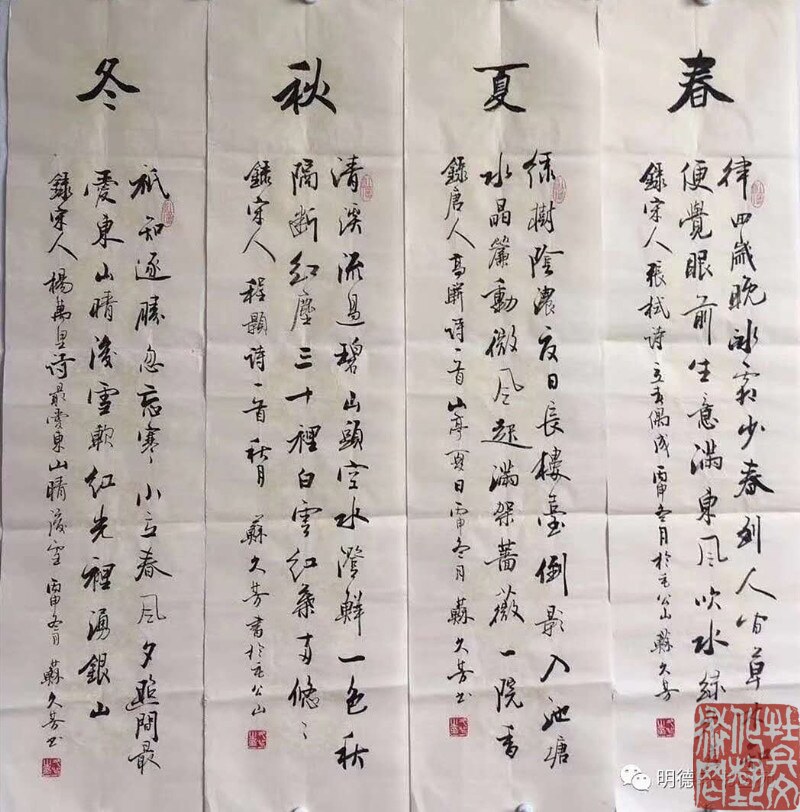 春
律回歲晚冰霜少春到人间草木
便覺眼前生意滿東风吹水綠
錄宋人張栻詩立春偶成丙申冬月於毛公山蘇久芳
夏
綠樹陰濃夏日長樓臺倒影入池塘
水晶簾動微风起滿架薔薇一院香
錄唐人高駢詩一首山亭夏日丙申冬月蘇久芳书
秋
清溪流過碧山頭空水澄鮮一色秋
隔斷紅塵三十裡白雲紅葉兩悠悠
錄宋人程顥詩一首秋月蘇久芳書於毛公山
冬
祇知逐勝忽忘寒小立春风夕照間最
愛東山晴後雪軟紅光裡湧銀山
錄宋人楊萬里詩最愛東山晴後雪丙申冬月蘇久芳书
明德